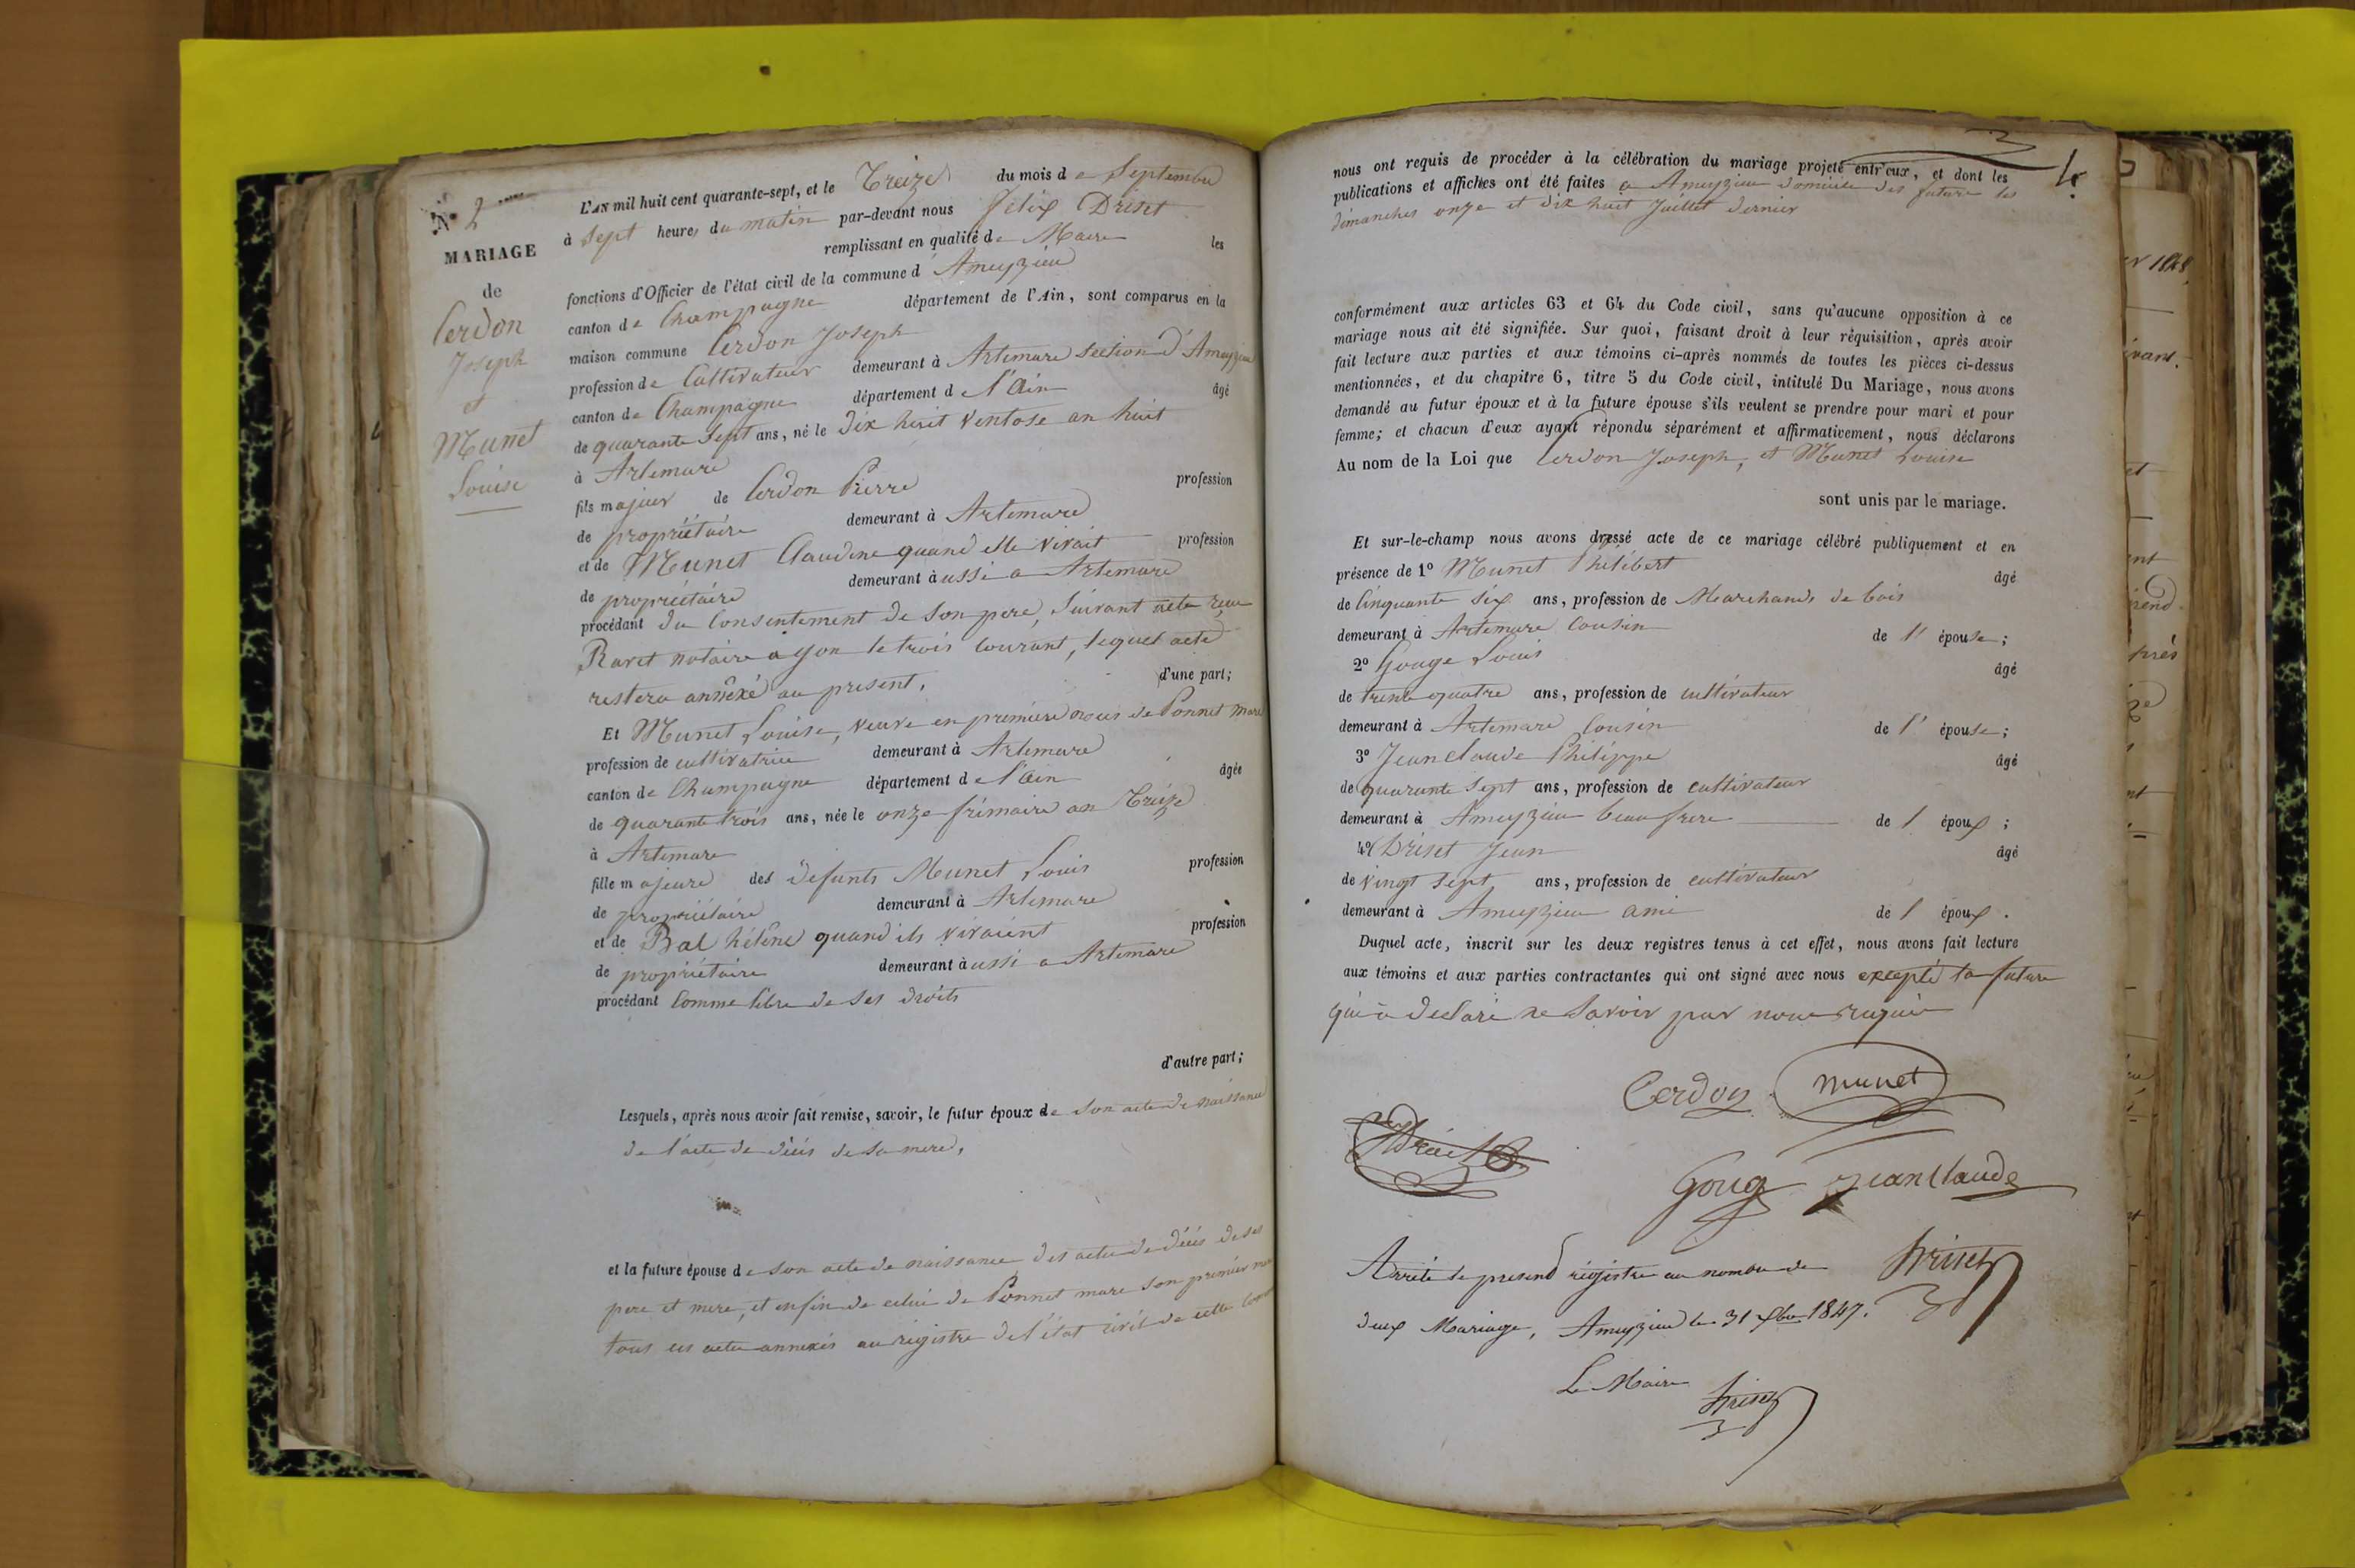 N° 2
MARIAGE
de
Cerdon
Joseph
et
Munet
Louise
L'AN mil huit cent quarante-sept, et le Treize du mois de Septembre
à Sept heures du matin par-devant nous Félix Driset
remplissant en qualité de Maire les
fonctions d'Officier de l'état civil de la commune d'Ameyzieu
canton de Champagne département de l'Ain, sont comparus en la
maison commune Cerdon Joseph
profession de Cultivateur demeurant à Artemare Section d'Ameyzieu
canton de Champagne département de l'Ain âgé
de quarante Sept ans, né le dix huit Ventose an huit
à Artemare
fils majeur de Cerdon Pierre profession
de propriétaire demeurant à Artemare
et de Munet Claudine quand elle vivait profession
de propriétaire demeurant à aussi a Artemare
procédant du Consentement de Son pere, Suivant acte reçu
Ravet notaire a yon le trois Courant, lequel acte
restera annéxé au present, d'une part;
Et Munet Louise, veuve en premiere noces de Ponnet mare
profession de cultivatrice demeurant à Artemare
canton de Champagne département de l'Ain âgée
de quarante trois ans, née le onze frimaire an Treize
à Artemare
fille majeure des defunts Munet Louis profession
de propriétaire demeurant à Artemare
et de Bal hélène quand ils vivaient profession
de propriétaire demeurant à aussi a Artemare
procédant Comme libre de Ses droits
d'autre part;
Lesquels, après nous avoir fait remise, savoir, le futur époux de Son acte de naissance
de l'acte de décès de Sa mere,
et la future épouse de Son acte de naissance des actes de décès de ses
pere et mere, et enfin de celui de Ponnet mare Son premier
tous ces actes annexés au registre de l'état civil de cette
3
4
nous ont requis de procéder à la célébration du mariage projeté entr'eux, et dont les
publications et affiches ont été faites a Ameyzieu domicile des futurs les
dimanches onze et dix huit Juillet dernier
conformément aux articles 63 et 64 du Code civil, sans qu'aucune opposition à ce
mariage nous ait été signifiée. Sur quoi, faisant droit à leur réquisition, après avoir
fait lecture aux parties et aux témoins ci-après nommés de toutes les pièces ci-dessus
mentionnées, et du chapitre 6, titre 5 du Code civil, intitulé Du Mariage, nous avons
demandé au futur époux et à la future épouse s'ils veulent se prendre pour mari et pour
femme; et chacun d'eux ayant répondu séparément et affirmativement, nous déclarons
Au nom de la Loi que Cerdon Joseph, et Munet Louise
sont unis par le mariage.
Et sur-le-champ nous avons dressé acte de ce mariage célébré publiquement et en
présence de 1° Munet Philibert âgé
de Cinquante Six ans, profession de Marchands de bois
demeurant à Artemare Cousin de l'épouse;
2° Gouge Louis âgé
de trente quatre ans, profession de cultivateur
demeurant à Artemare Cousin de l'épouse;
3° Jeanclaude Philippe âgé
de quarante sept ans, profession de cultivateur
demeurant à Ameyzieu beau frere de l époux ;
4° Driset Jean âgé
de vingt sept ans, profession de cultivateur
demeurant à Ameyzieu ami de l époux .
Duquel acte, inscrit sur les deux registres tenus à cet effet, nous avons fait lecture
aux témoins et aux parties contractantes qui ont signé avec nous excepté la future
qui a declaré ne Savoir
Cerdon munet
Goug JeanClaude
Arrêté le present régistre au nombre de Driset
deux Mariage, Ameyzieu le 31 Xbre 1847.
Le Maire
Driset